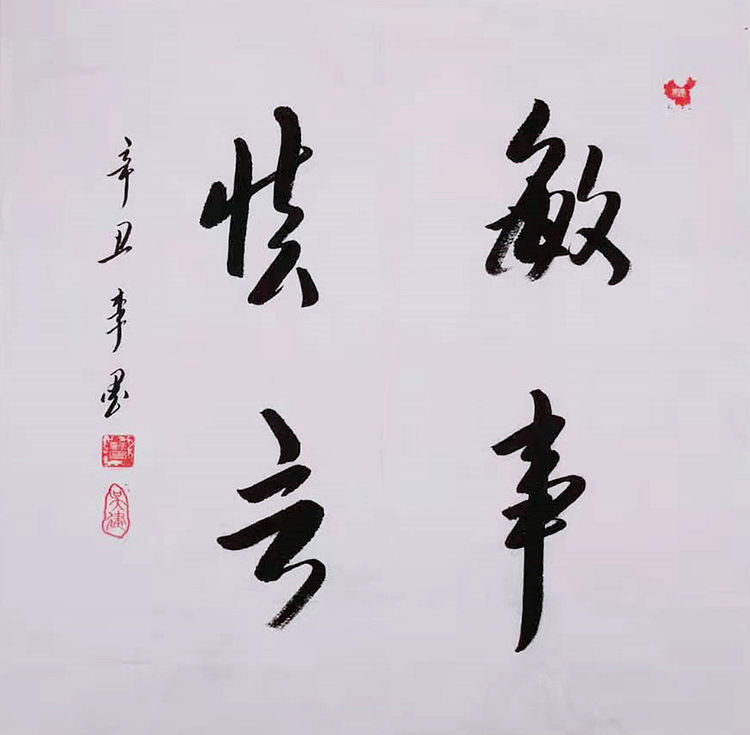 敏事
慎言
辛丑李墨
吴建